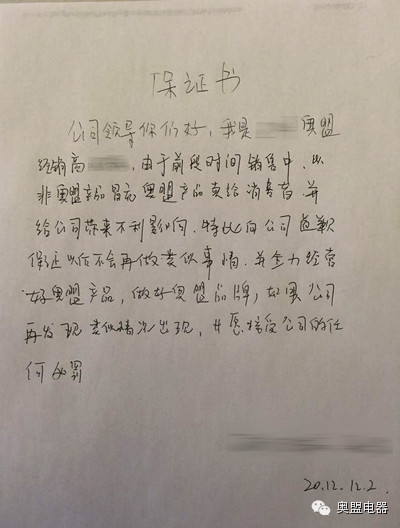 保证书
公司领导你们好，我是 奥盟
经销商 ，由于前段时间销售中，以
非奥盟产品冒充奥盟产品卖给消费者，并
给公司带来不利影响，特此向公司道歉
保证以后不会再做类似事情，并全力经营
好奥盟产品，做好奥盟品牌，如果公司
再发现类似情况出现，甘愿接受公司的任
何处罚
20.12.12.2.
奥盟电器